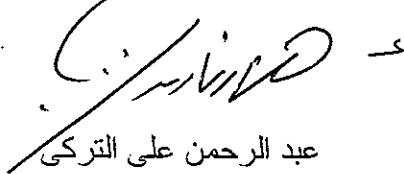 عبد الرحمن على التركى